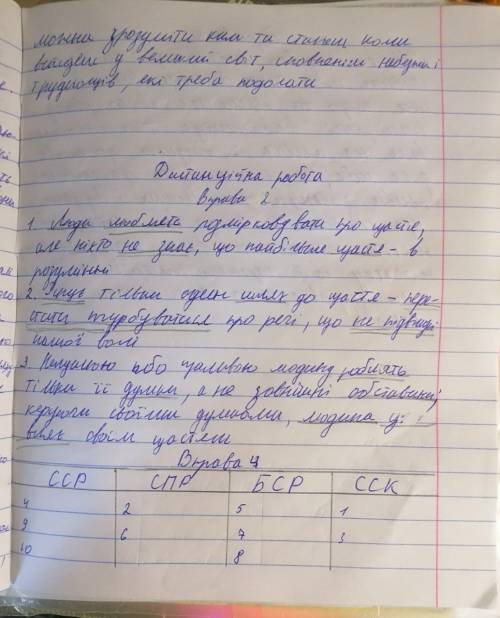 можна зрозуміти ким ти станеш коли
вийдеш у великий світ, сповнений небезпек і
труднощів, які треба подолати
Дистанційна робота
Вправа 2
1. Люди люблять розмірковувати про щастя,
але ніхто не знає, що найбільше щастя - в
розумінні
2. Існує тільки один шлях до щастя - пере-
стати турбуватися про речі, що не підвладні
нашої волі
3. Нещасною або щасливою людину роблять
тільки її думки, а не зовнішні обставини,
керуючи своїми думками, людина
своїм щастям
Вправа 4
ССР СПР БСР ССК
4 2 5 1
9 6 7 3
10 8